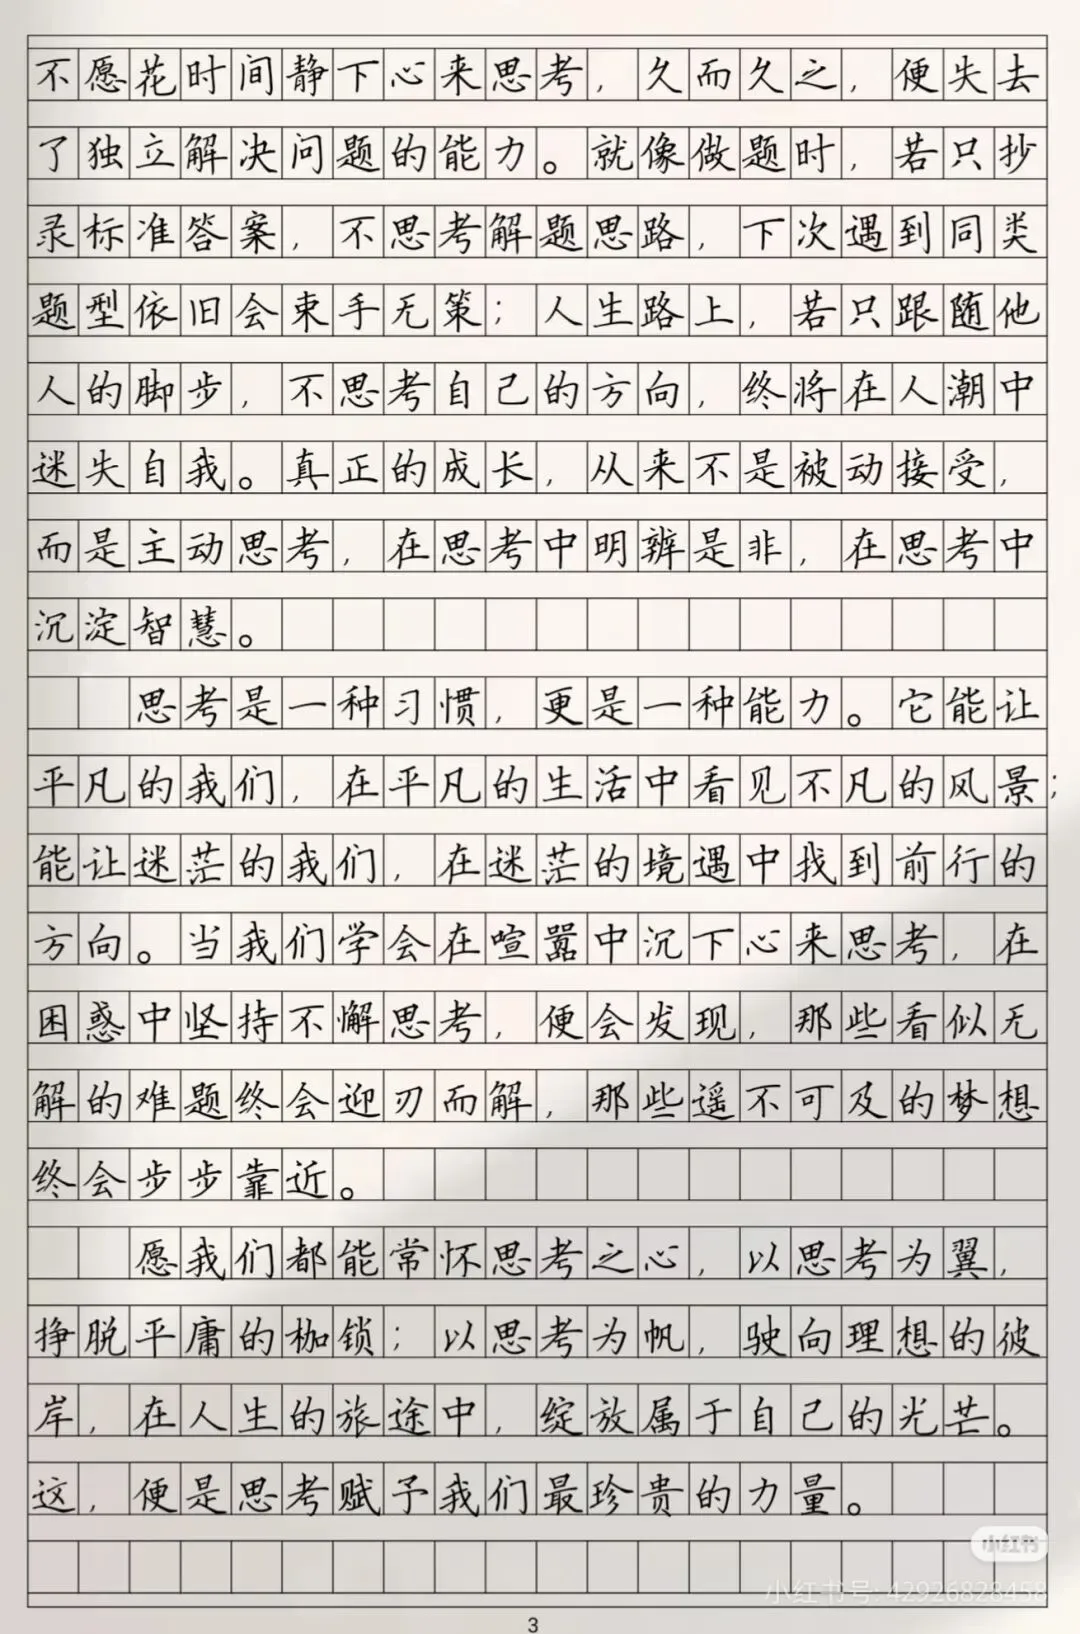 不愿花时间静下心来思考，久而久之，便失去
了独立解决问题的能力。就像做题时，若只抄
录标准答案，不思考解题思路，下次遇到同类
题型依旧会束手无策；人生路上，若只跟随他
人的脚步，不思考自己的方向，终将在人潮中
迷失自我。真正的成长，从来不是被动接受，
而是主动思考，在思考中明辨是非，在思考中
沉淀智慧。
思考是一种习惯，更是一种能力。它能让
平凡的我们，在平凡的生活中看见不凡的风景；
能让迷茫的我们，在迷茫的境遇中找到前行的
方向。当我们学会在喧嚣中沉下心来思考，在
困惑中坚持不懈思考，便会发现，那些看似无
解的难题终会迎刃而解，那些遥不可及的梦想
终会步步靠近。
愿我们都能常怀思考之心，以思考为翼，
挣脱平庸的枷锁；以思考为帆，驶向理想的彼
岸，在人生的旅途中，绽放属于自己的光芒。
这，便是思考赋予我们最珍贵的力量。
小红书
小红书号: 42926828458
3